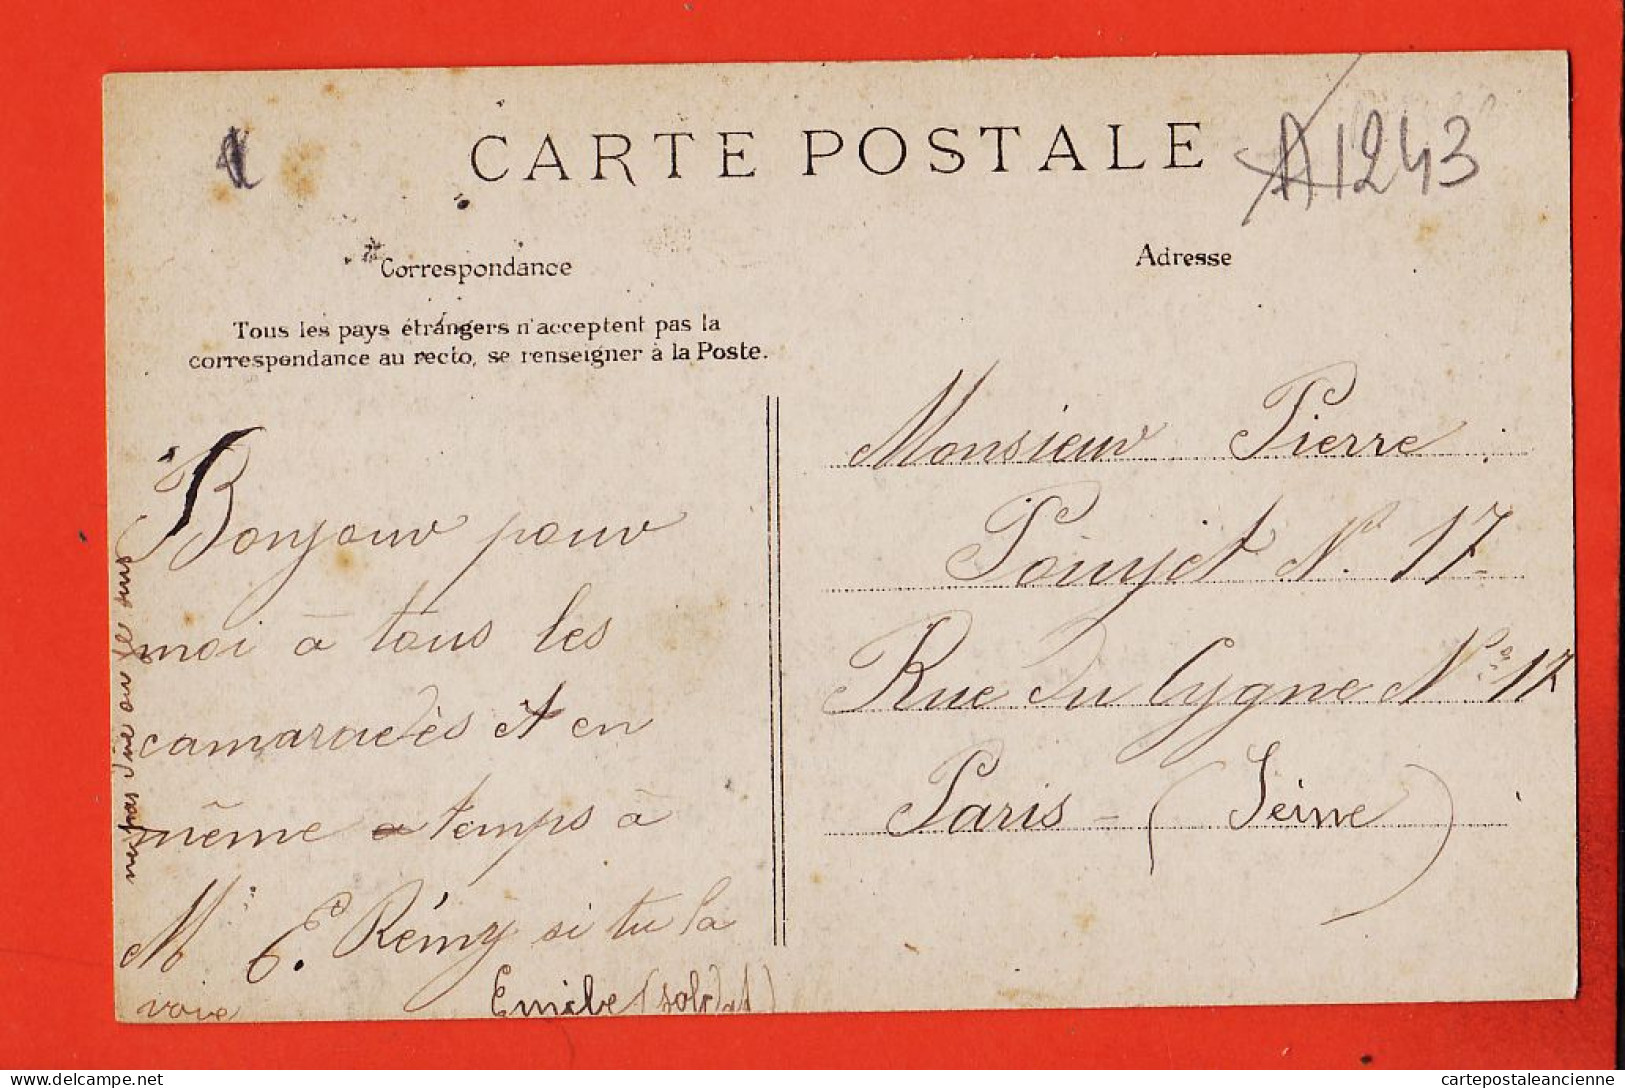 CARTE POSTALE
A1243
Correspondance
Adresse
Tous les pays étrangers n'acceptent pas la
correspondance au recto, se renseigner à la Poste.
Monsieur Pierre
Poujet N° 17
Rue Du Cygne N° 17
Paris - (Seine)
Bonjour pour
moi à tous les
camaradès et en
même temps à
Mr E. Rémy si tu la
voie
(soldat)
cartepostaleancienne
www.delcampe.net